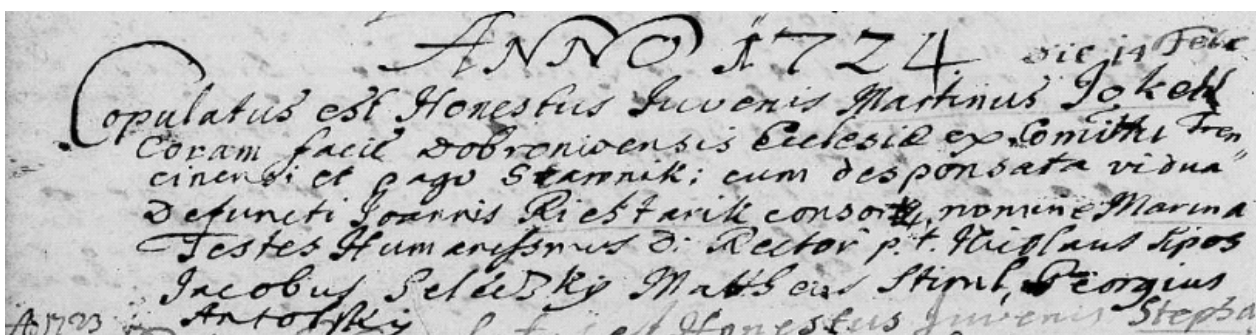 ANNO 1724 die 14 Febr
Copulatus est Honestus Iuvenis Martinus
Coram facie Dobroniwensis Ecclesiæ ex Comittu Tren
cinensi et pago Stawnik; cum desponsata vidua
Defuncti Joannis Richtarik consorte, nomine Marina
Testes Humanissmus D: Rector p.t. Nicolaus Sipos
Jacobus Matheus Georgius
Antolsky
Ao 1723 est Honestus Juvenis Stepha